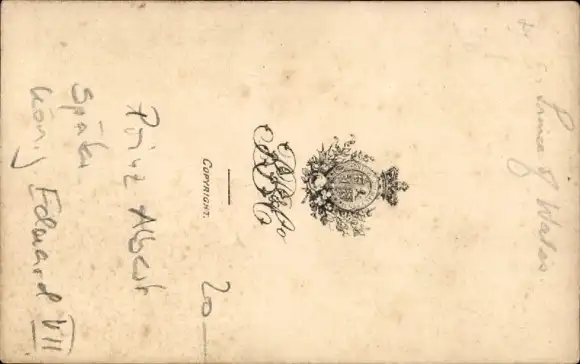 Prince of Wales.
COPYRIGHT.
20
Prinz Albert
Später
König Edward VII